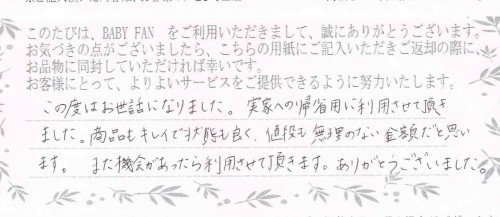 このたびは、BABY FAN をご利用いただきまして、誠にありがとうございます。
お気づきの点がございましたら、こちらの用紙にご記入いただきご返却の際に、
お品物に同封していただければ幸いです。
お客様にとって、よりよいサービスをご提供できるように努力いたします。
この度はお世話になりました。実家への帰省用に利用させて頂き
ました。商品もキレイで状態も良く、値段も無理のない金額だと思い
ます。また機会があったら利用させて頂きます。ありがとうございました。